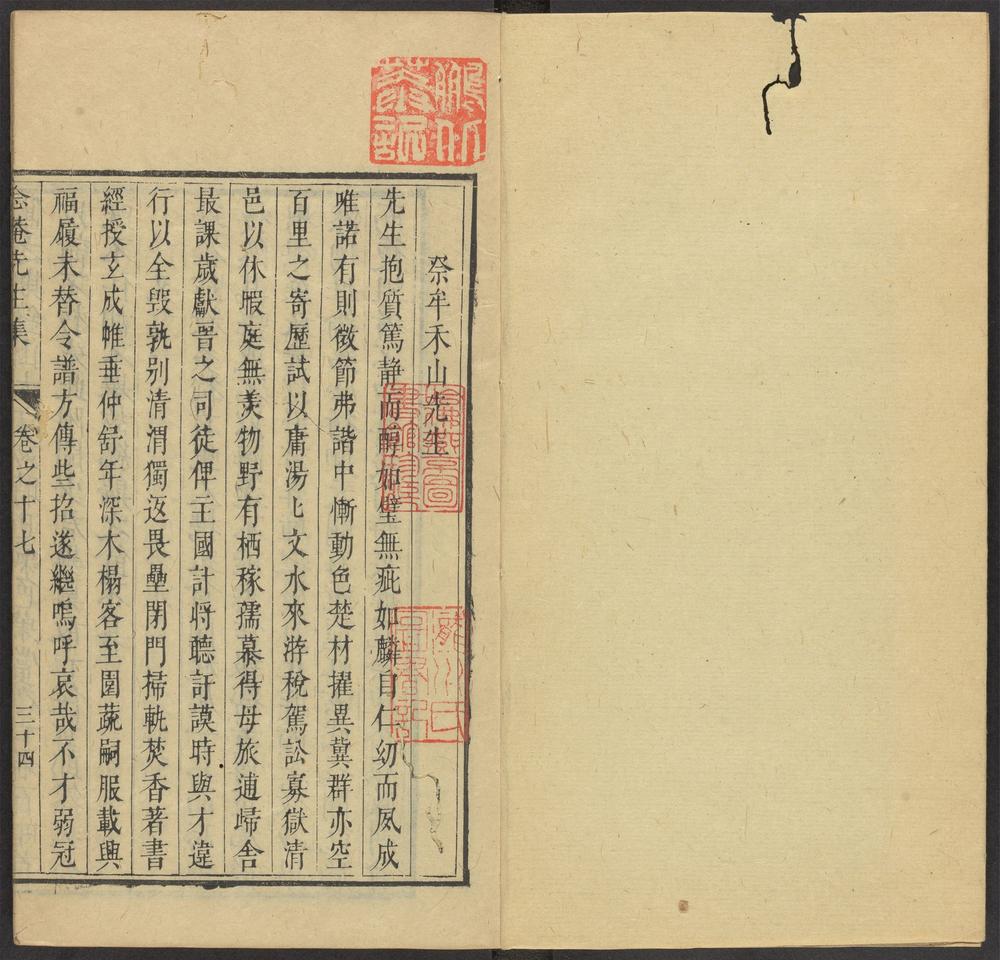 祭牟禾山先生
先生抱質篤静而醇如璧無疵如麟自仁幼而夙成
唯諾有則徵節弗諧中慚動色楚材擢異冀群亦空
百里之寄歷試以庸湯匕文水來游稅駕訟寡獄清
邑以休暇庭無羡物野有栖稼孺慕得母旅逋歸舍
最課歲獻晋之司徒俾主國計将聽訏謨時與才違
行以全毀孰别清渭獨返畏壘閉門掃軌焚香著書
經授玄成帷垂仲舒年深木榻客至園蔬嗣服載興
福履未替令譜方傳些招遂繼嗚呼哀哉不才弱冠
念菴先生集 卷之十七 三十四